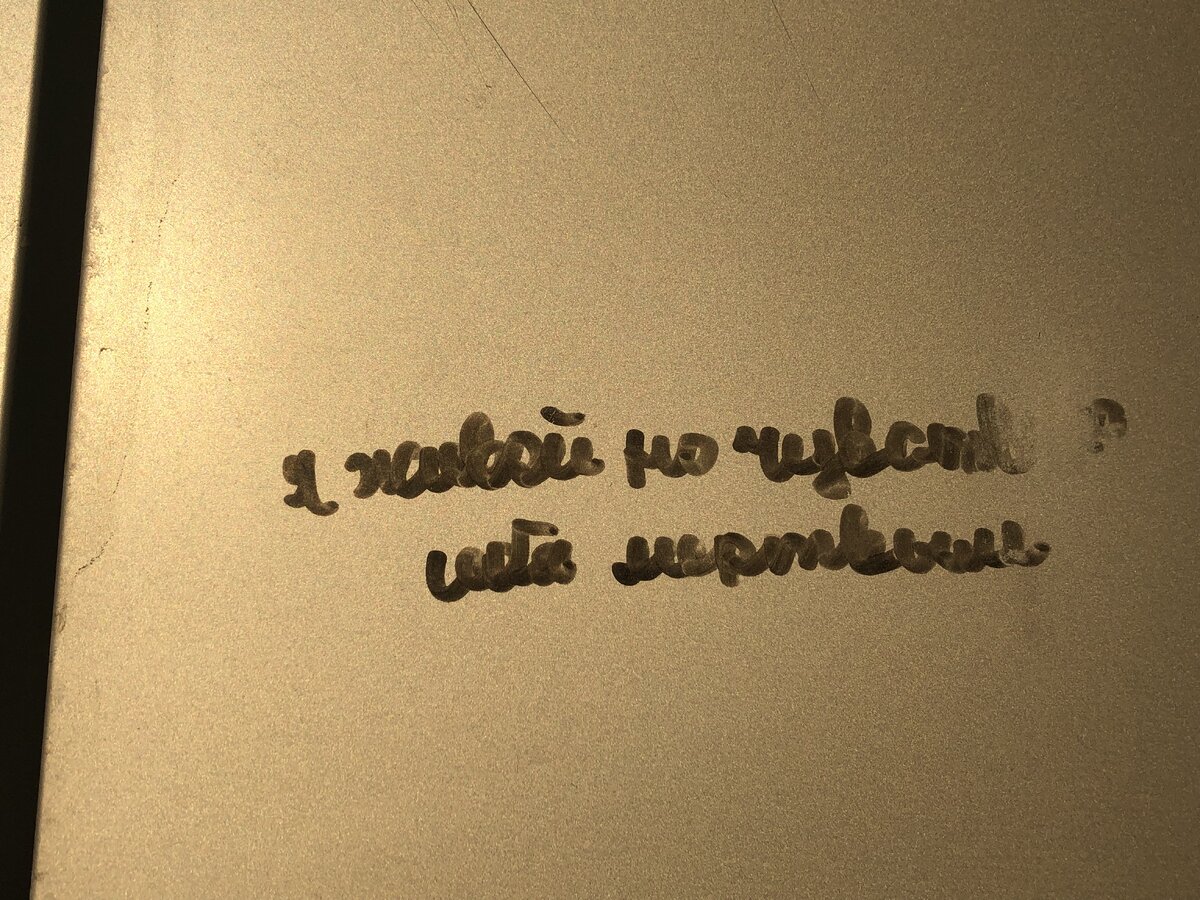 я живой но чувств
себя мертвым